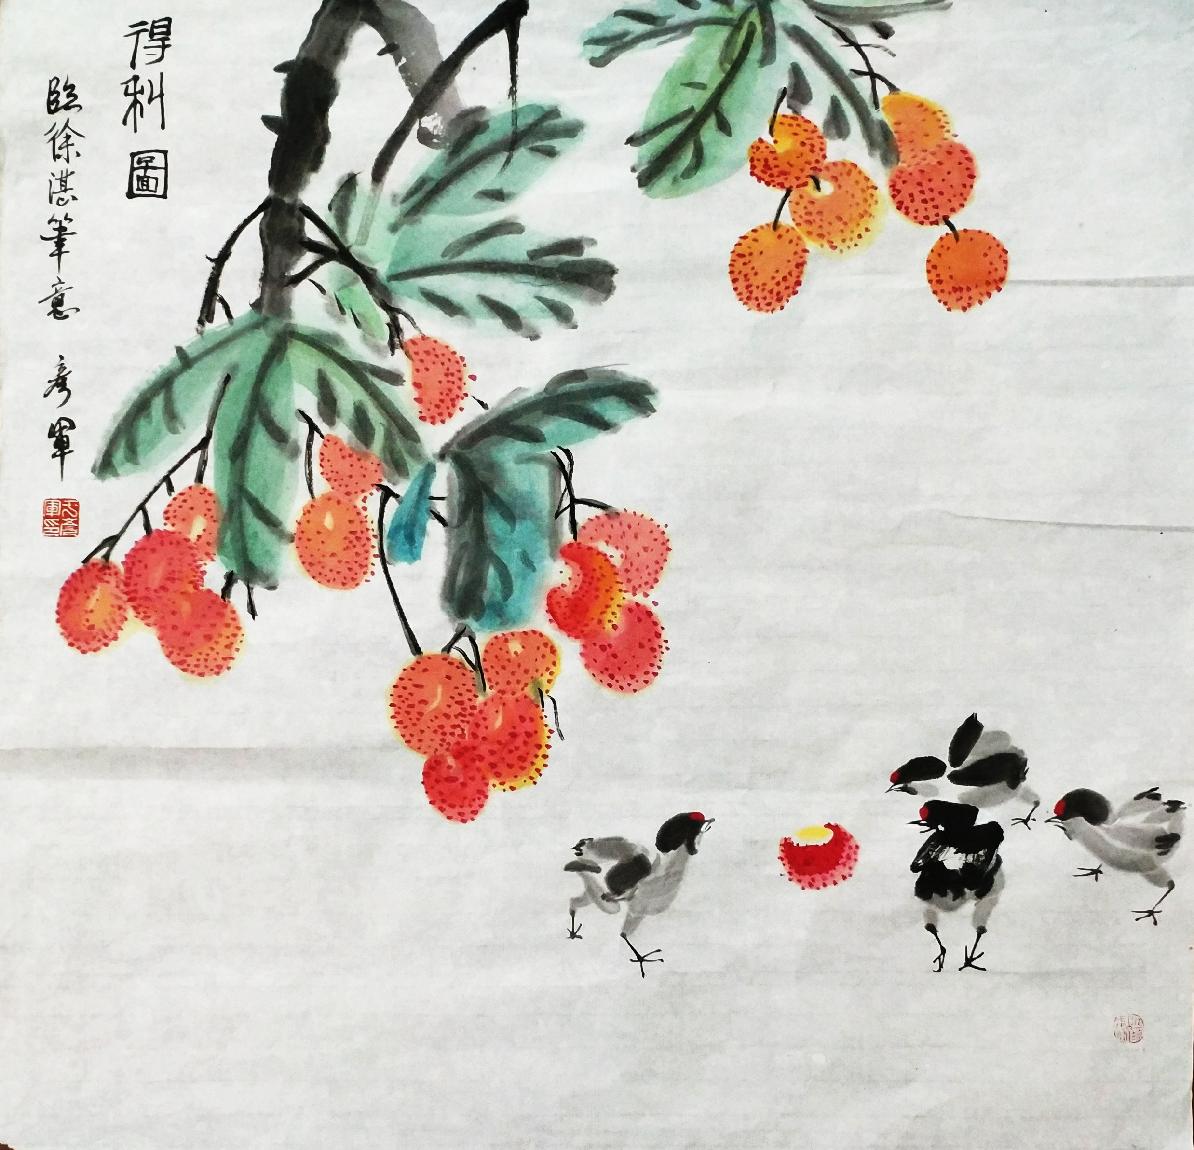 得利圖
臨徐湛筆意 彦軍